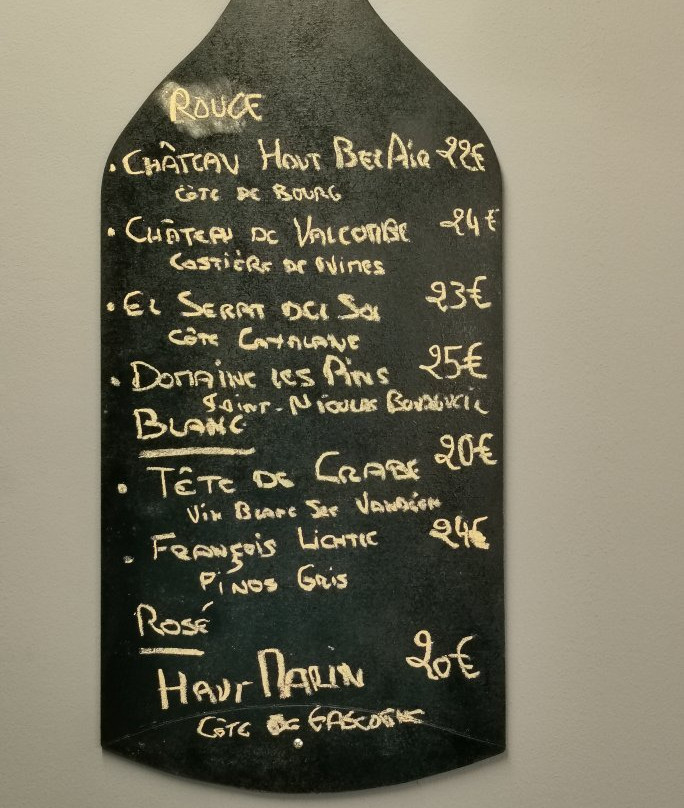 ROUGE
• CHÂTEAU HAUT BEL AIR 22€
CÔTE DE BOURG
• CHÂTEAU DE VALCOMBE 24€
COSTIÈRE DE NIMES
• EL SERRAT DEL SOL 23€
CÔTE CATALANE
• DOMAINE LES PINS 25€
SAINT-NICOLAS BOURGUEIL
BLANC
• TÊTE DE CRABE 20€
VIN BLANC SEC VENDÉEN
• FRANÇOIS LICHTLE 24€
PINOS GRIS
ROSÉ
HAUT MARIN 20€
CÔTE DE GASCOGNE